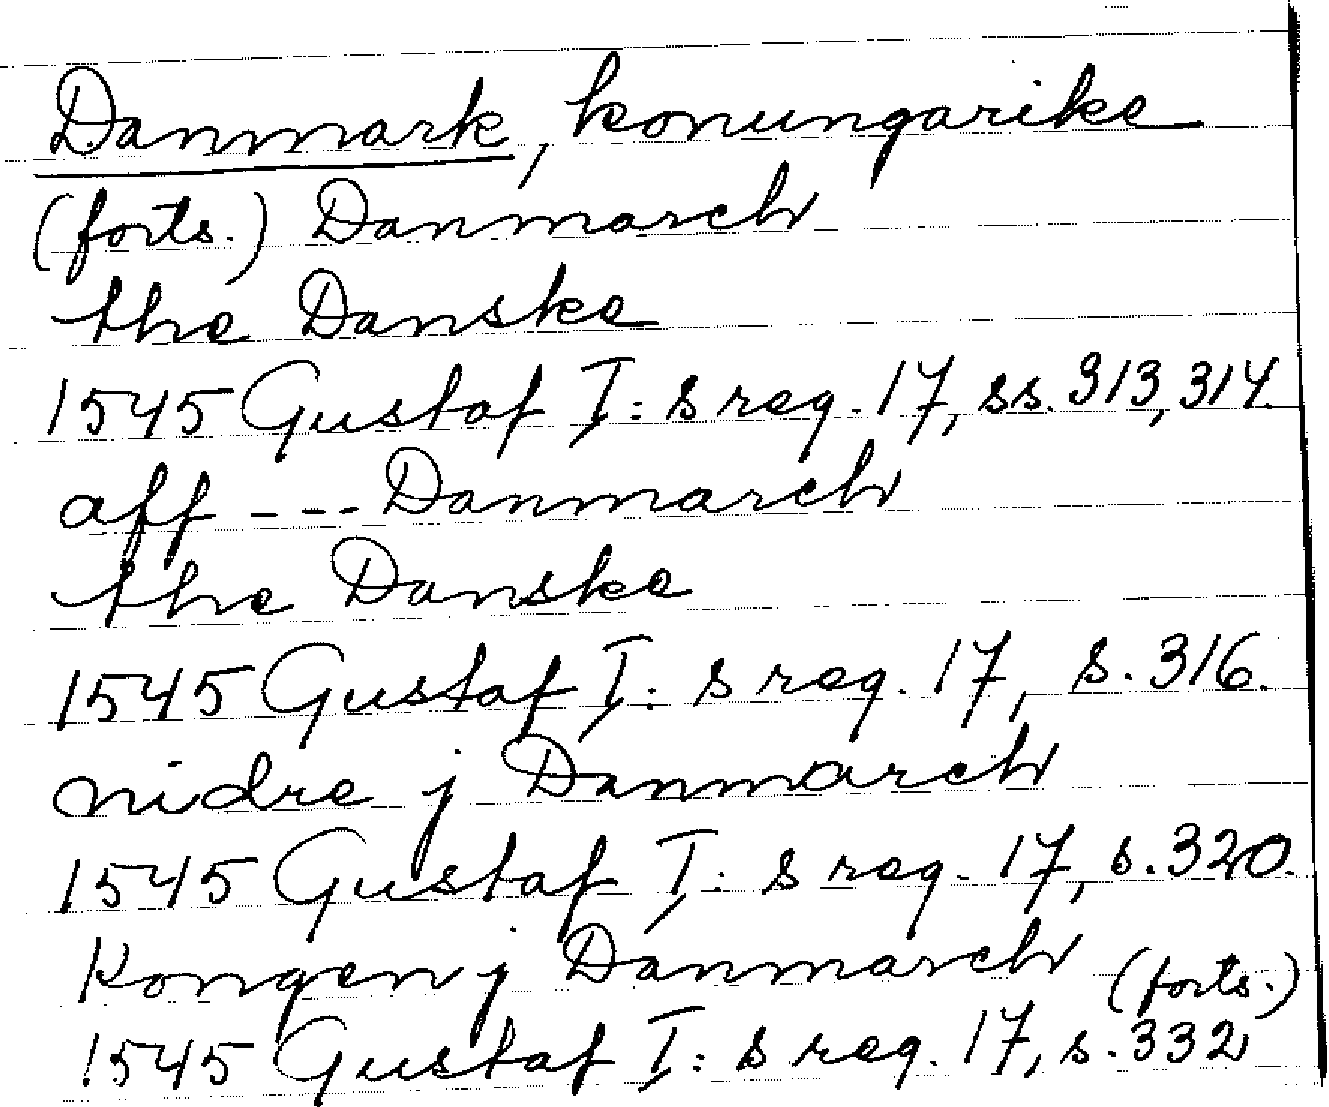 Danmark, konungarike
(forts.) Danmarch
the Danske
1545 Gustaf I: s reg. 17, ss. 313, 314.
aff --- Danmarch
the Danske
1545 Gustaf I: s reg. 17, s. 316.
nidre j Danmarch
1545 Gustaf I: s reg. 17, s. 320.
Kongen j Danmarch (forts.)
1545 Gustaf I: s reg. 17, s. 332